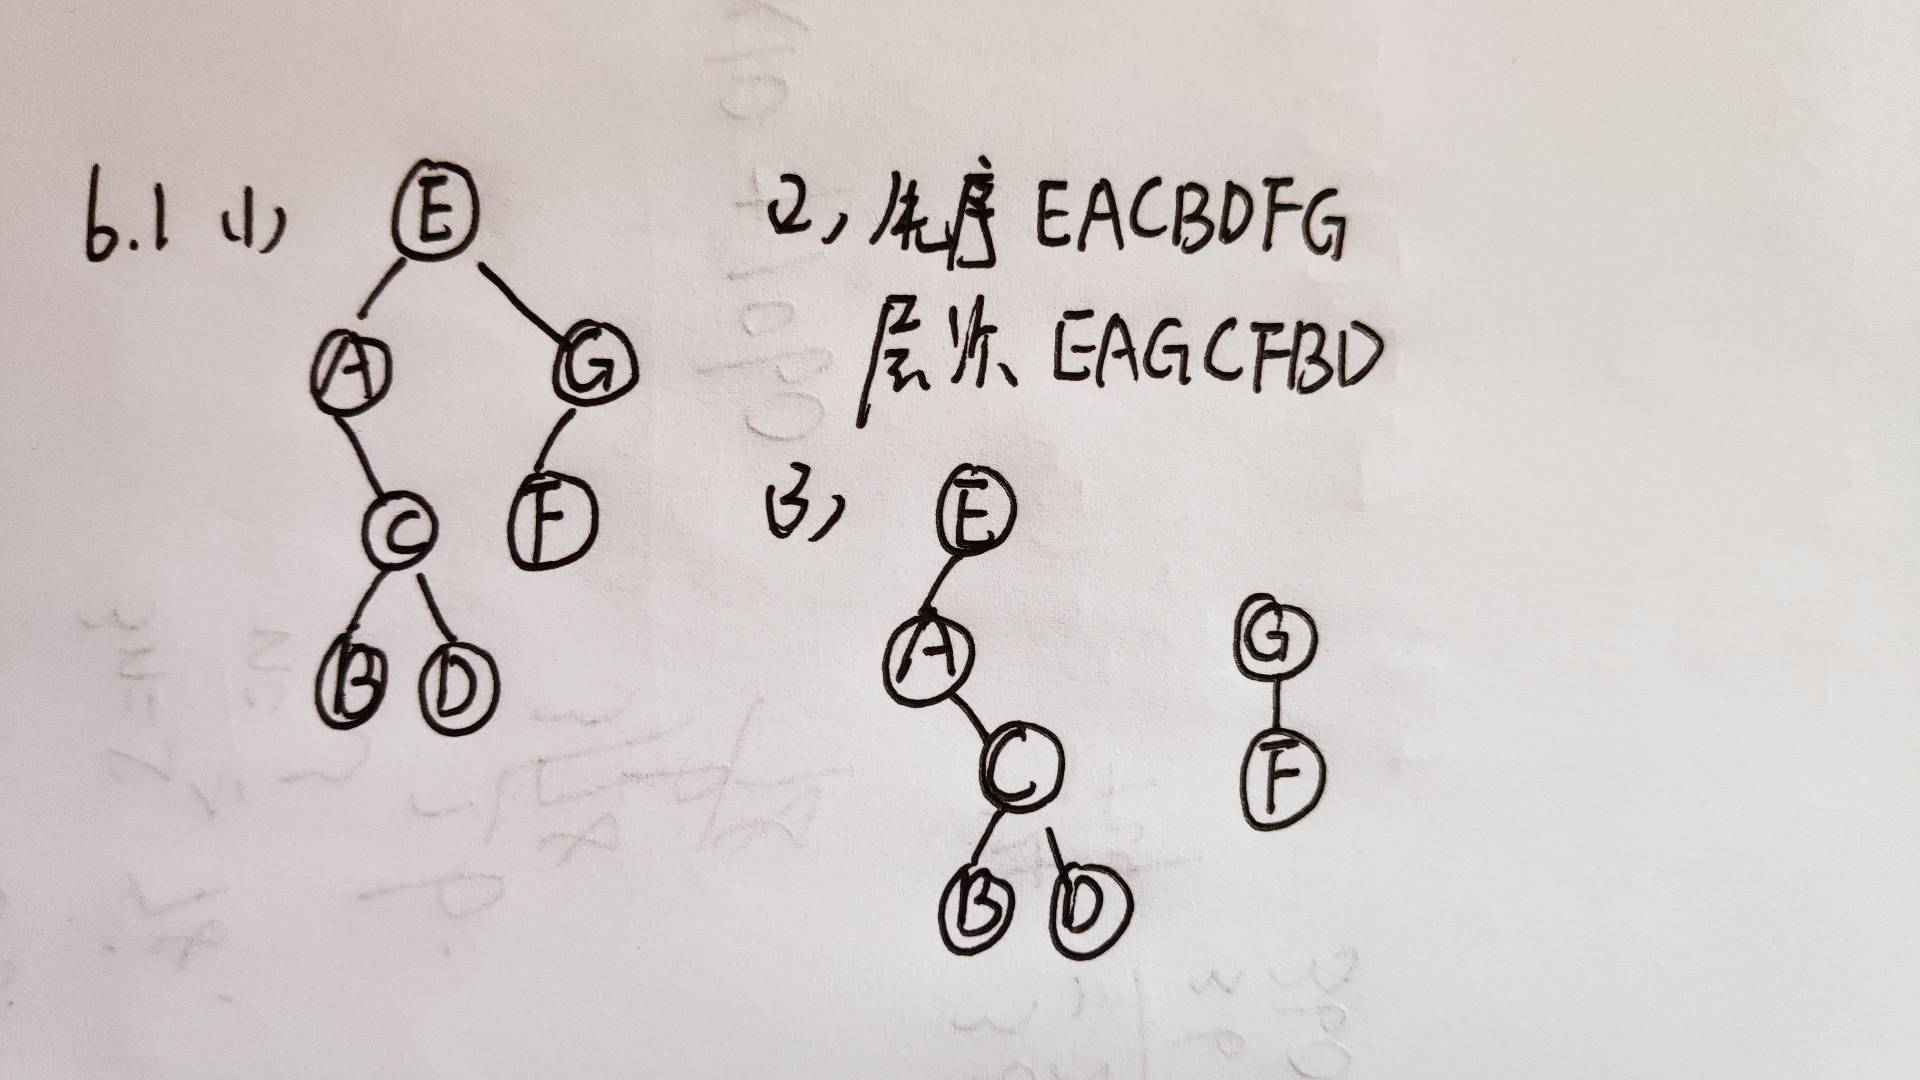 6.1 (1)
E
A G
C F
B D
2, 先序 EACBDFG
层次 EAGCFBD
3,
E
A G
C F
B D